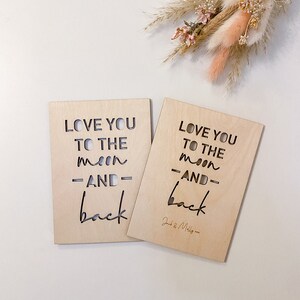 LOVE YOU
TO THE
moon
— AND —
back
LOVE YOU
TO THE
moon
— AND —
back